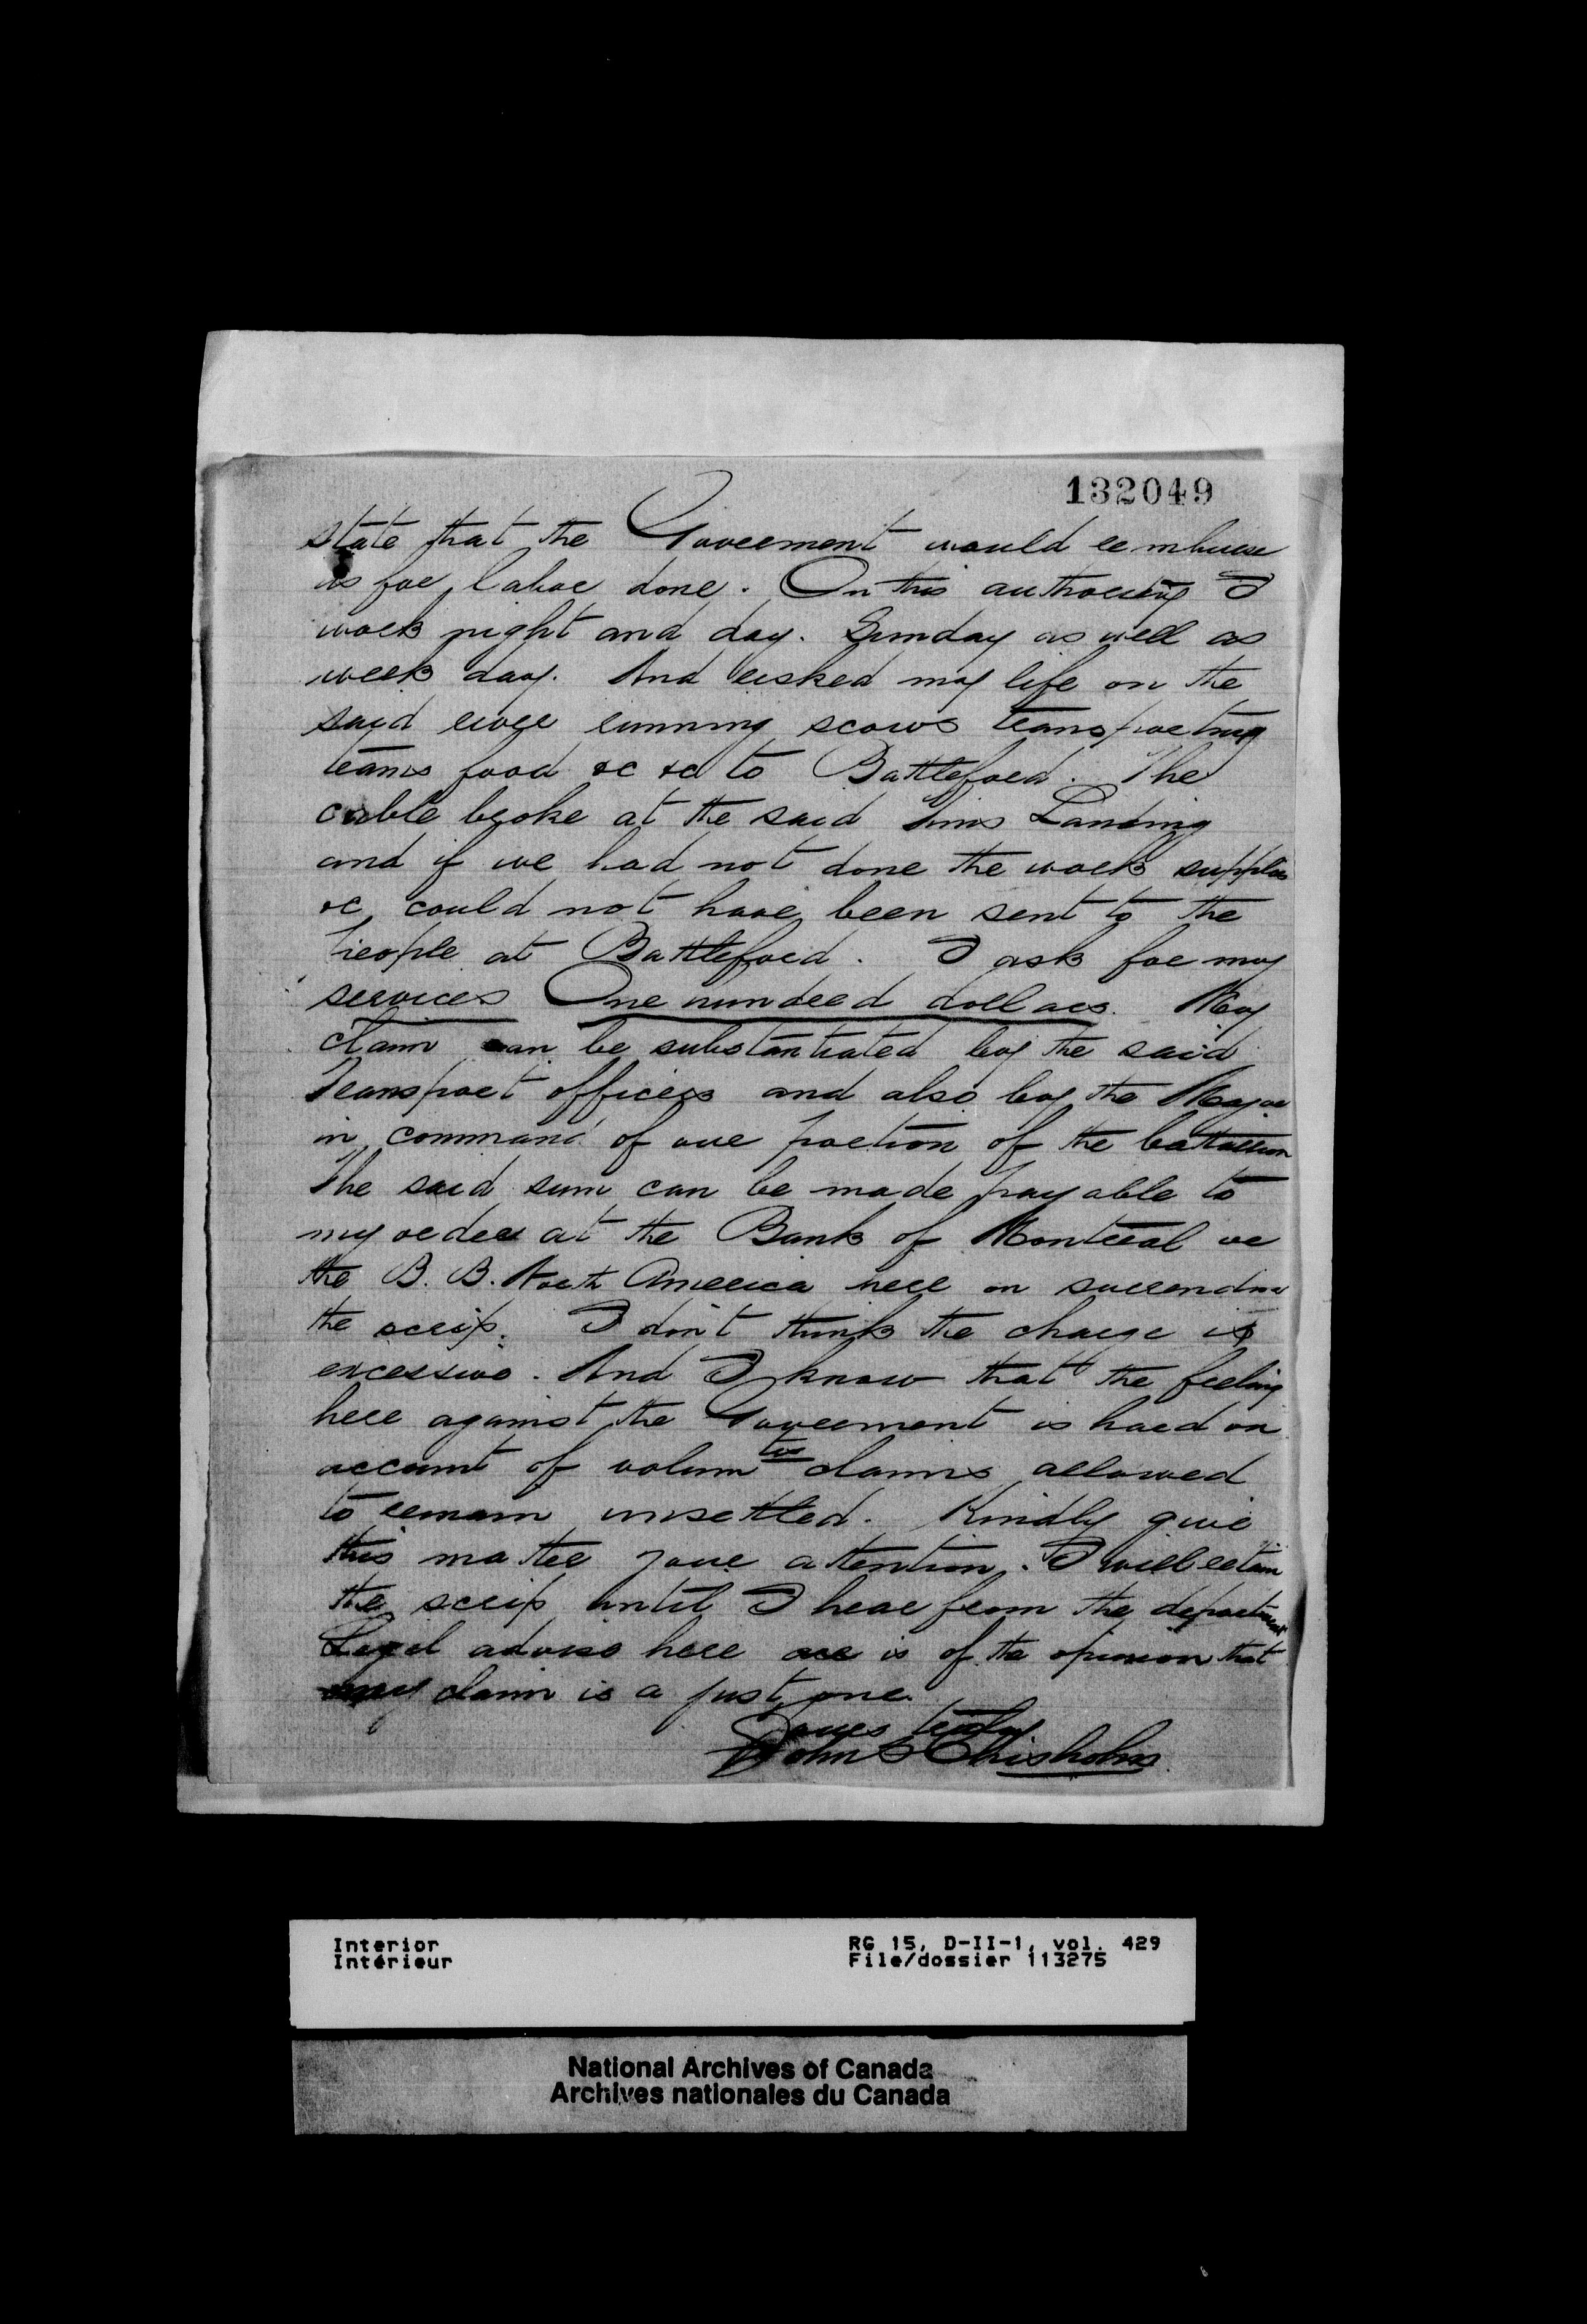 132049
state that the Government would reimburse
us for labor done. On this authority I
work night and day. Sunday as well as
week day. And risked my life on the
said river running scows transporting
teams food &c &c to Battleford. The
cable broke at the said Landing
and if we had not done the work supplies
&c could not have been sent to the
People at Battleford. I ask for my
services One hundred dollars. My
claim can be substantiated by the said
Transport officers and also by the Major
in command of our portion of the battallion
The said sum can be made payable to
my order at the Bank of Montreal or
the B. B. North America here on surrendering
the scrip. I don't think the charge is
excessive. And I know that the feeling
here against the Government is hard on
account of volunteers claims allowed
to remain unsettled. Kindly give
this matter your attention. I will retain
the scrip until I hear from the department
Legal advise here is of the opinion that
my claim is a just one.
Yours truly
John S Chisholm
Interior RG 15, D-II-1, vol. 429
Intérieur File/dossier 113275
National Archives of Canada
Archives nationales du Canada